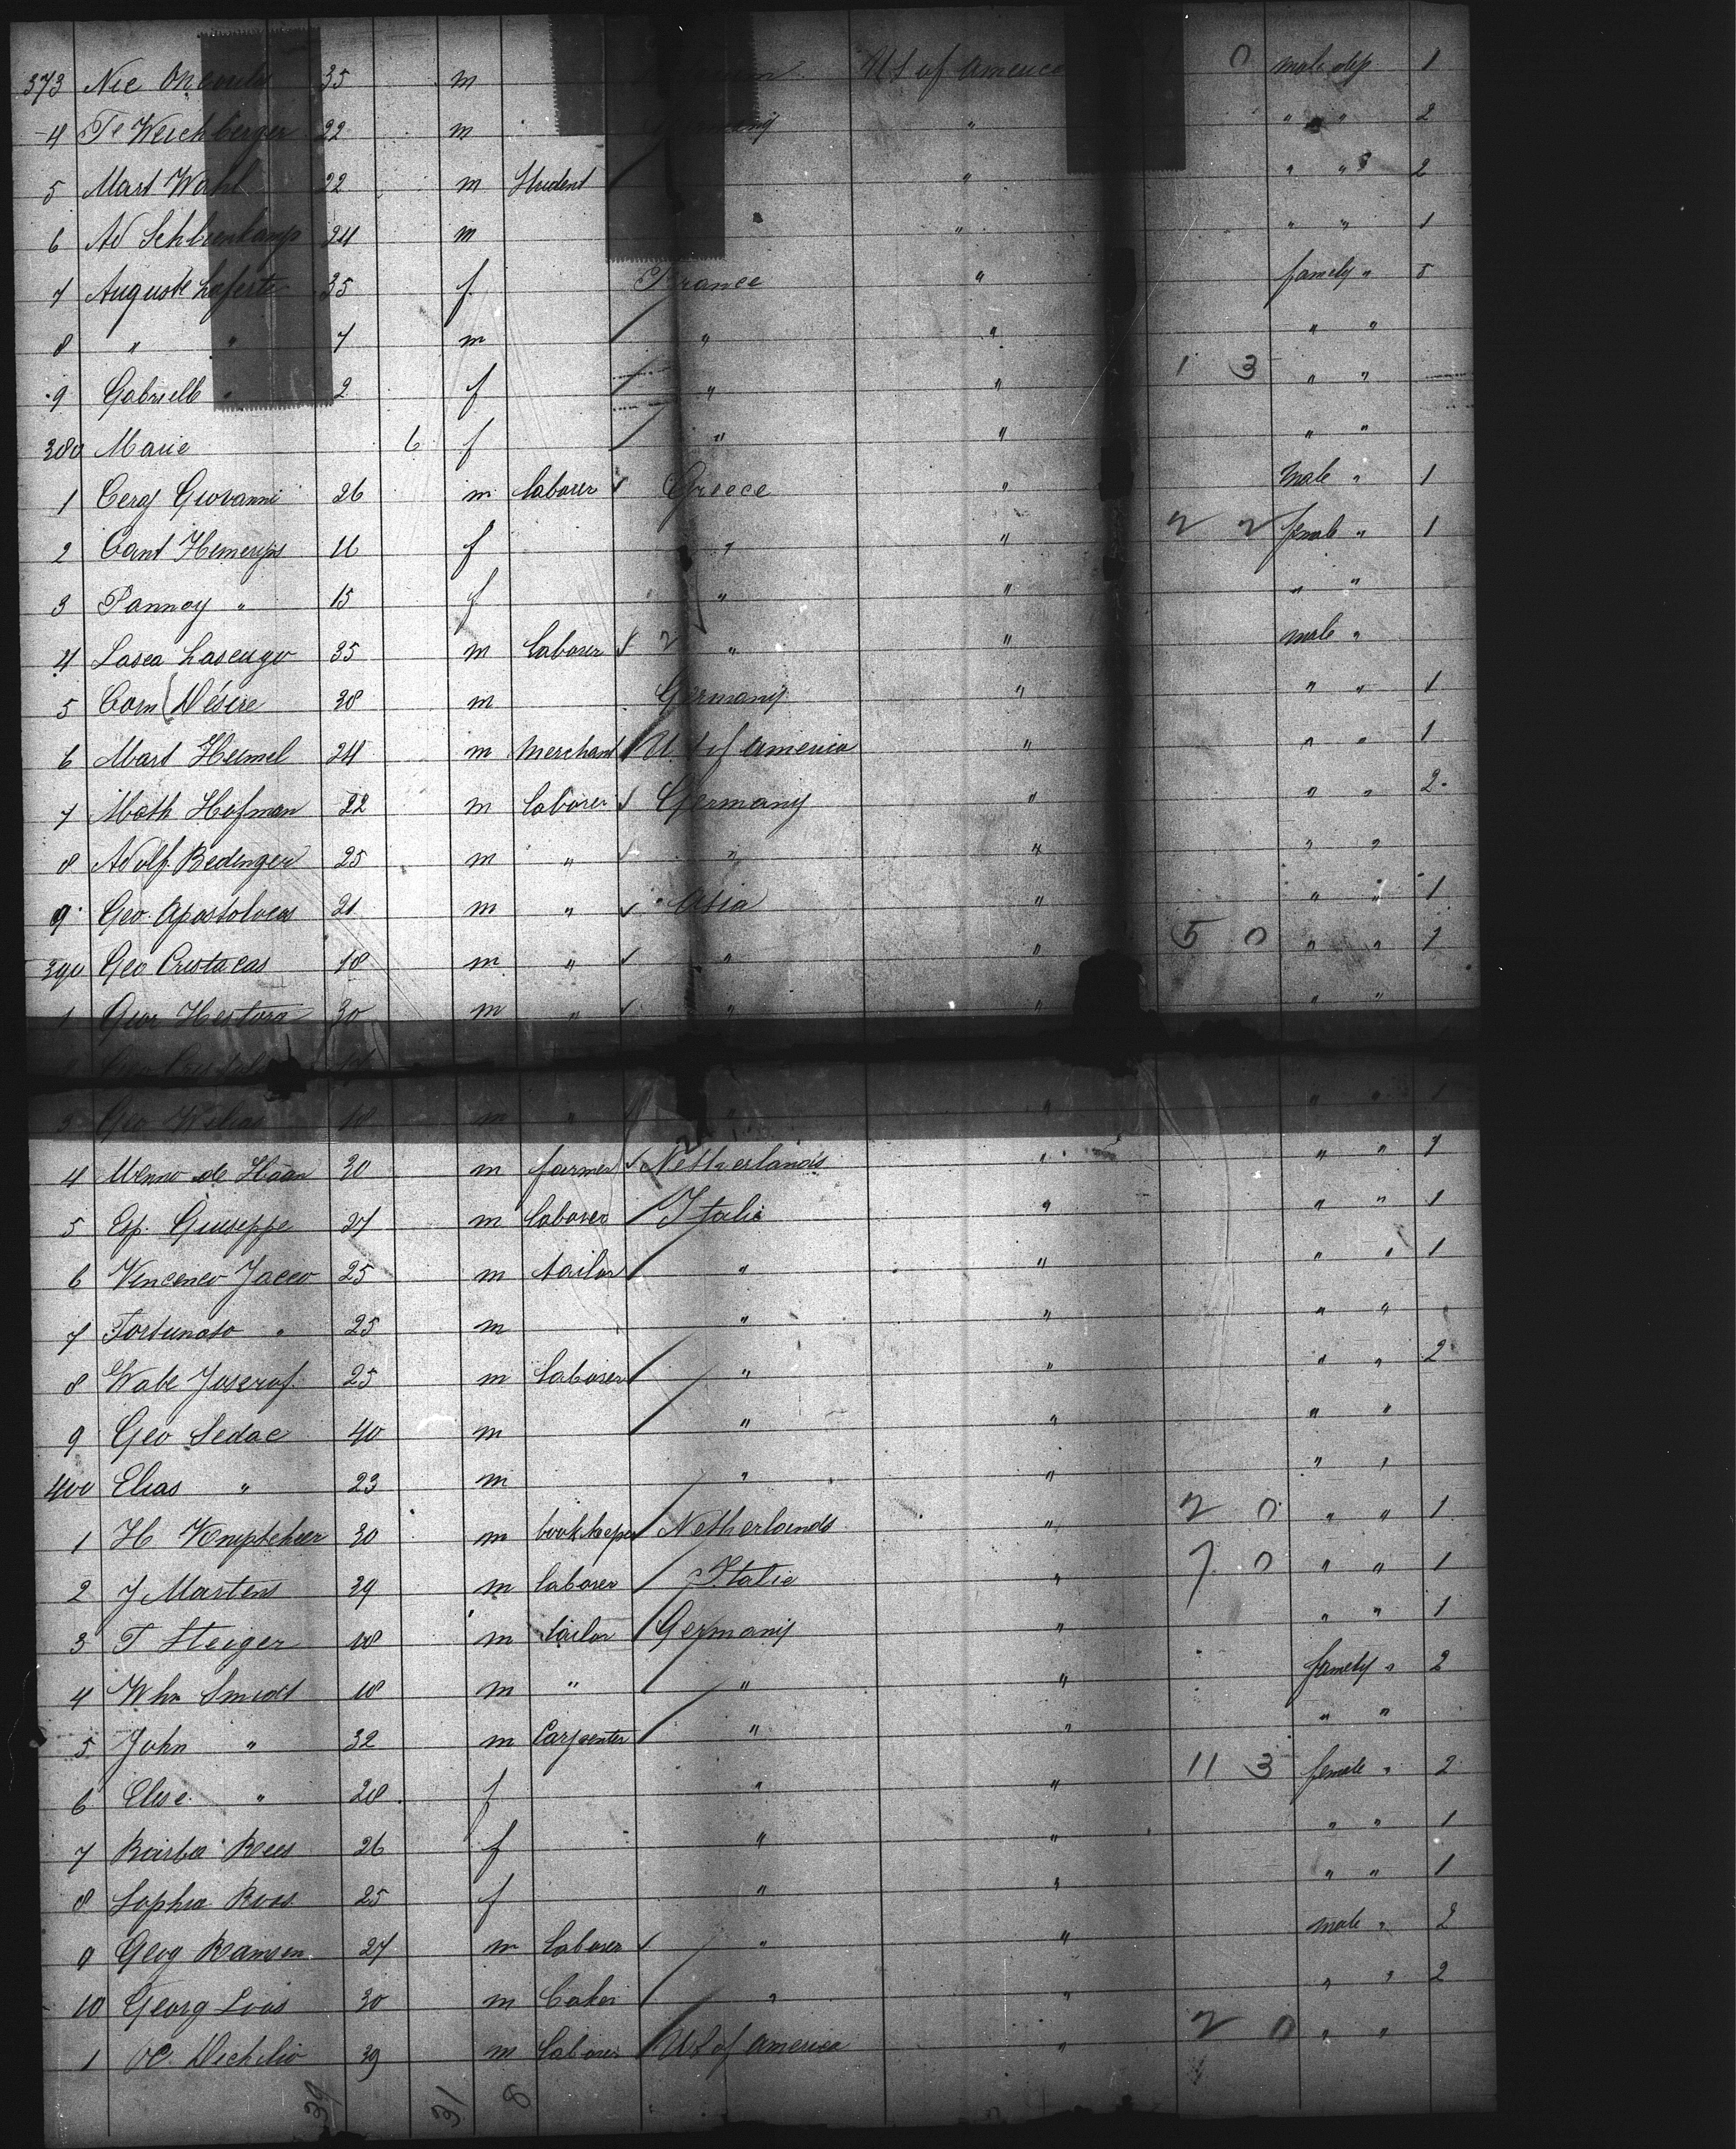 373 Nic 35 m U S of America 0 male dep 1
4 Te Weichberger 22 m " " " 2
5 Mart Wahl 22 m Student " " " 2
6 Ad 24 m " " " 1
7 Auguste Laferte 35 f France " family " 5
8 " " 7 m " " " "
9 Gabrielle " 2 f " " 1 3 " "
380 Marie 6 f " " " "
1 Cerg Giovanni 26 m laborer Greece " male " 1
2 Cant f " " 2 2 female " 1
3 Pannoy " 15 f " " " "
4 Lasca 35 m laborer 2 " " male "
5 Com (Désire 28 m Germany " " " 1
6 Mart Heimel 24 m merchant U. S of America " " " 1
7 Math Hofman 22 m laborer Germany " " " 2
8 Adolf Bedinger 25 m " " " " "
9 Geo Apostolucas 21 m " Asia " " " 1
390 Geo Cristacas 18 m " " " 5 0 " " 1
1 Geor 30 m " " " " "
Geo
3 Geo 18 m " " " " " 1
4 Menno de Haan 30 m farmer Netherlands " " " 1
5 Esp. Giuseppe 27 m laborer Italie " " " 1
6 Vincenco Jacco 25 m tailor " " " " 1
7 Fortunato " 25 m " " " "
8 Wabe 25 m laborer " " " " 2
9 Geo Sedac 40 m " " " "
400 Elias " 23 m " " " "
1 H. 30 m bookkeeper Netherlands " 2 0 " " 1
2 J Martens 39 m laborer Italie " 7 0 " " 1
3 T Steiger 18 m tailor Germany " " " 1
4 Whn Smidt 18 m " " " family " 2
5 John " 32 m Carpenter " " " "
6 Elise " 28 f " " 11 3 female " 2
7 Barba Rees 26 f " " " " 1
8 Sophia Roos 25 f " " " " 1
9 Georg Ramsen 27 m laborer " " male " 2
10 Georg Loos 30 m " " " " 2
1 39 m laborer U S of America " 2 0 " "
39 31 8